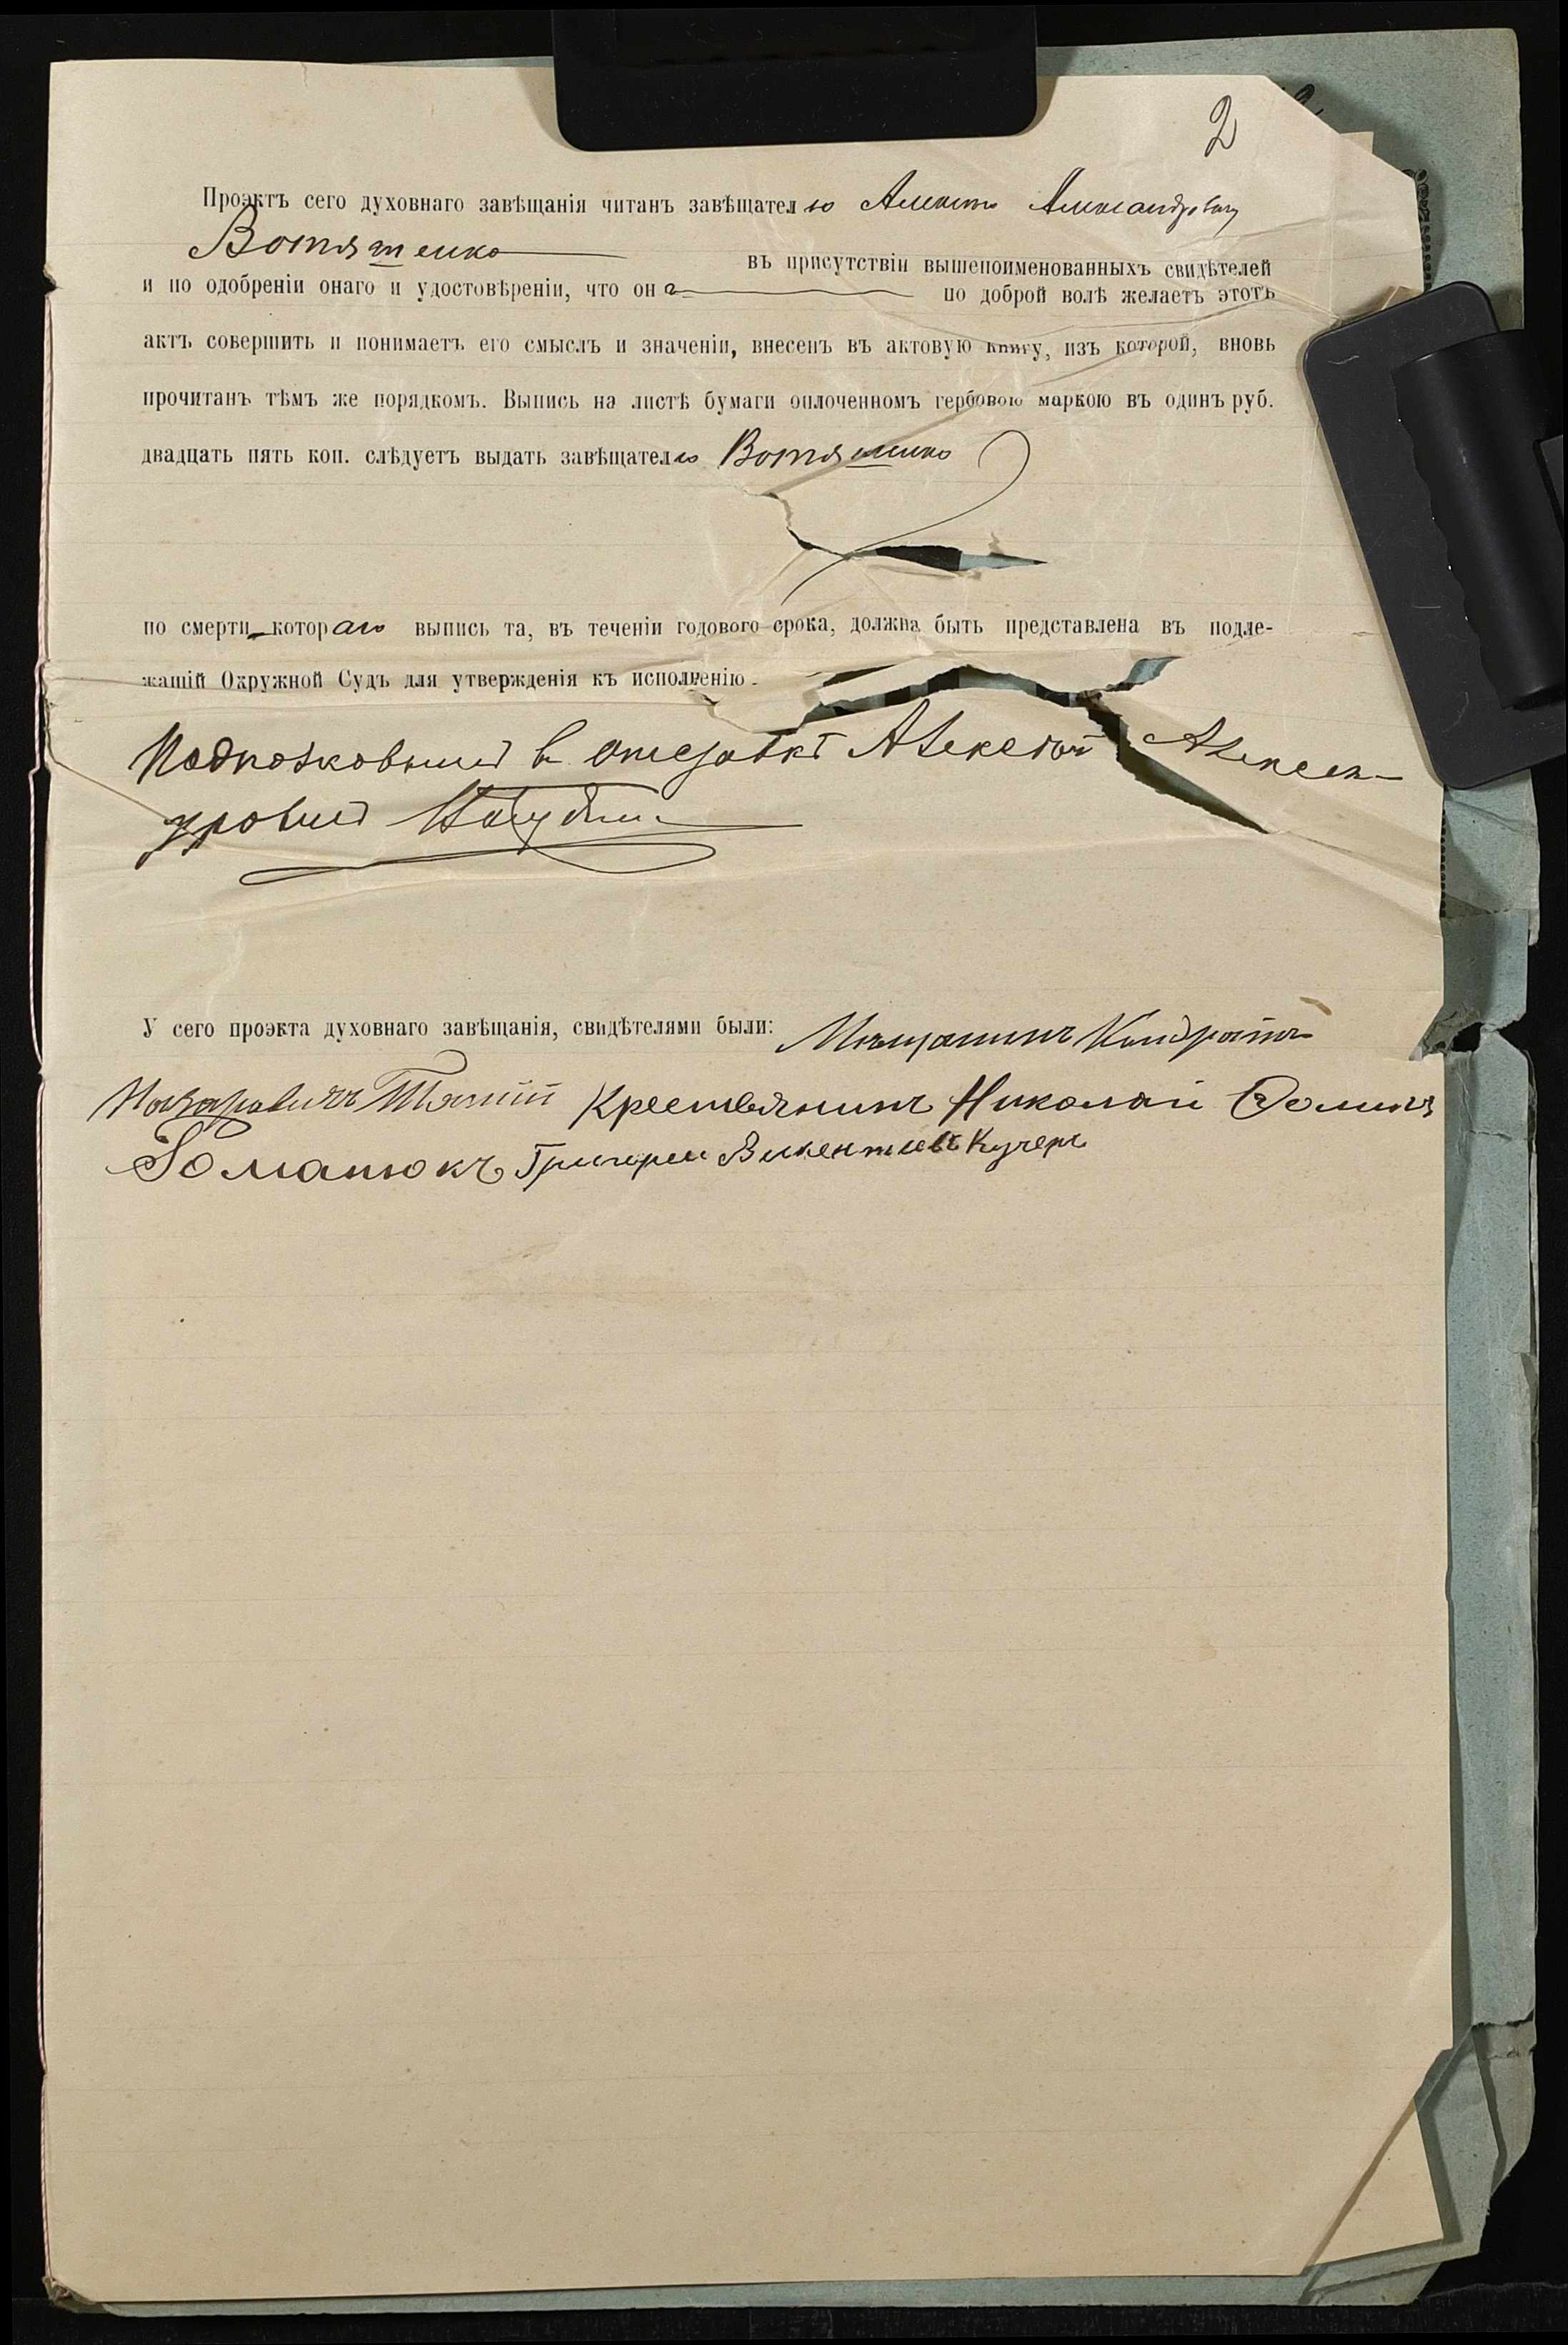 2
Проэктъ сего духовнаго завѣщанія читанъ завѣщателю Алексѣю Александровичу
въ присутствіи вышепоименованныхъ свидѣтелей
и по одобреніи онаго и удостовѣреніи, что онъ по доброй волѣ желаетъ этотъ
актъ совершить и понимаетъ его смыслъ и значеніи, внесенъ въ актовую книгу, изъ которой, вновь
прочитанъ тѣмъ же порядкомъ. Выпись на листѣ бумаги оплоченномъ гербовою маркою въ одинъ руб.
двадцать пять коп. слѣдуетъ выдать завѣщателю
по смерти котораго выпись та, въ теченіи годового срока, должна быть представлена въ подле-
жащій Окружной Судъ для утвержденія къ исполненію.
Подполковникъ въ отставкѣ Алексѣй Алексан-
дровичъ
У сего проэкта духовнаго завѣщанія, свидѣтелями были: Мѣщанинъ Кондратъ
Назаровичъ Крестьянинъ Николай
Романюкъ Григорей Викентіевъ Кучеръ